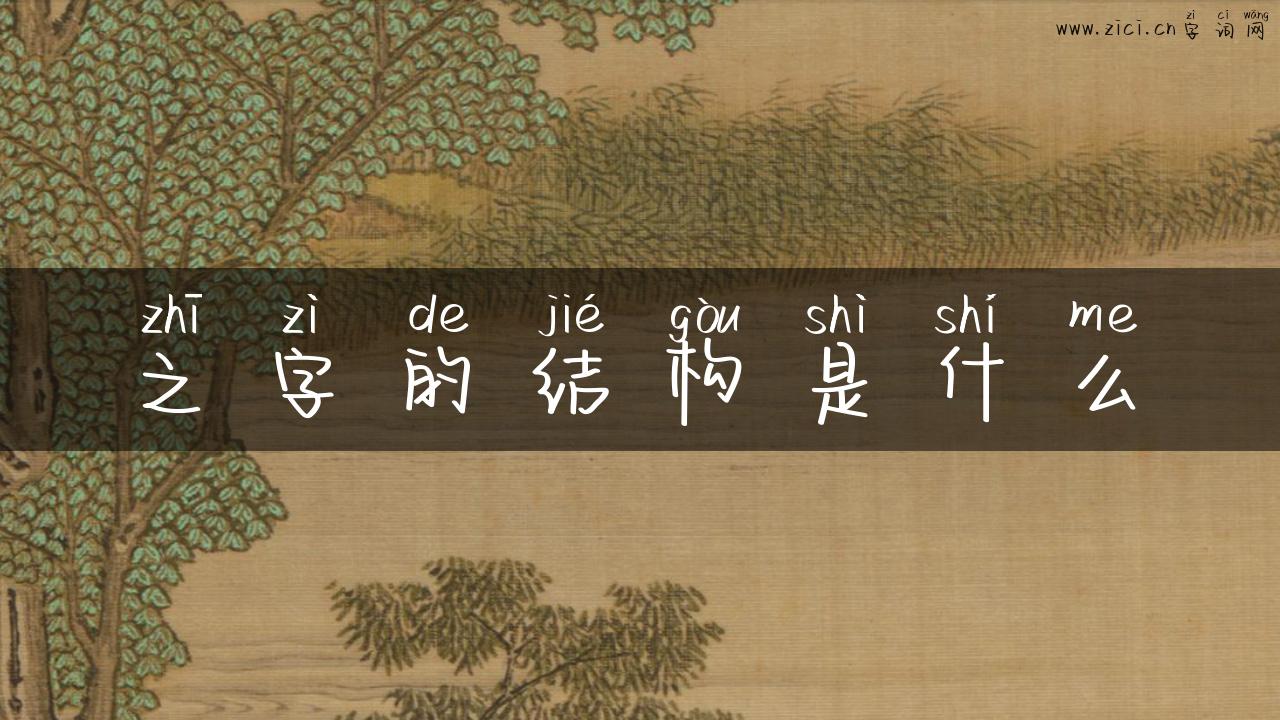 zì cí wǎng
www.zici.cn字词网
zhī zì de jié gòu shì shí me
之字的结构是什么